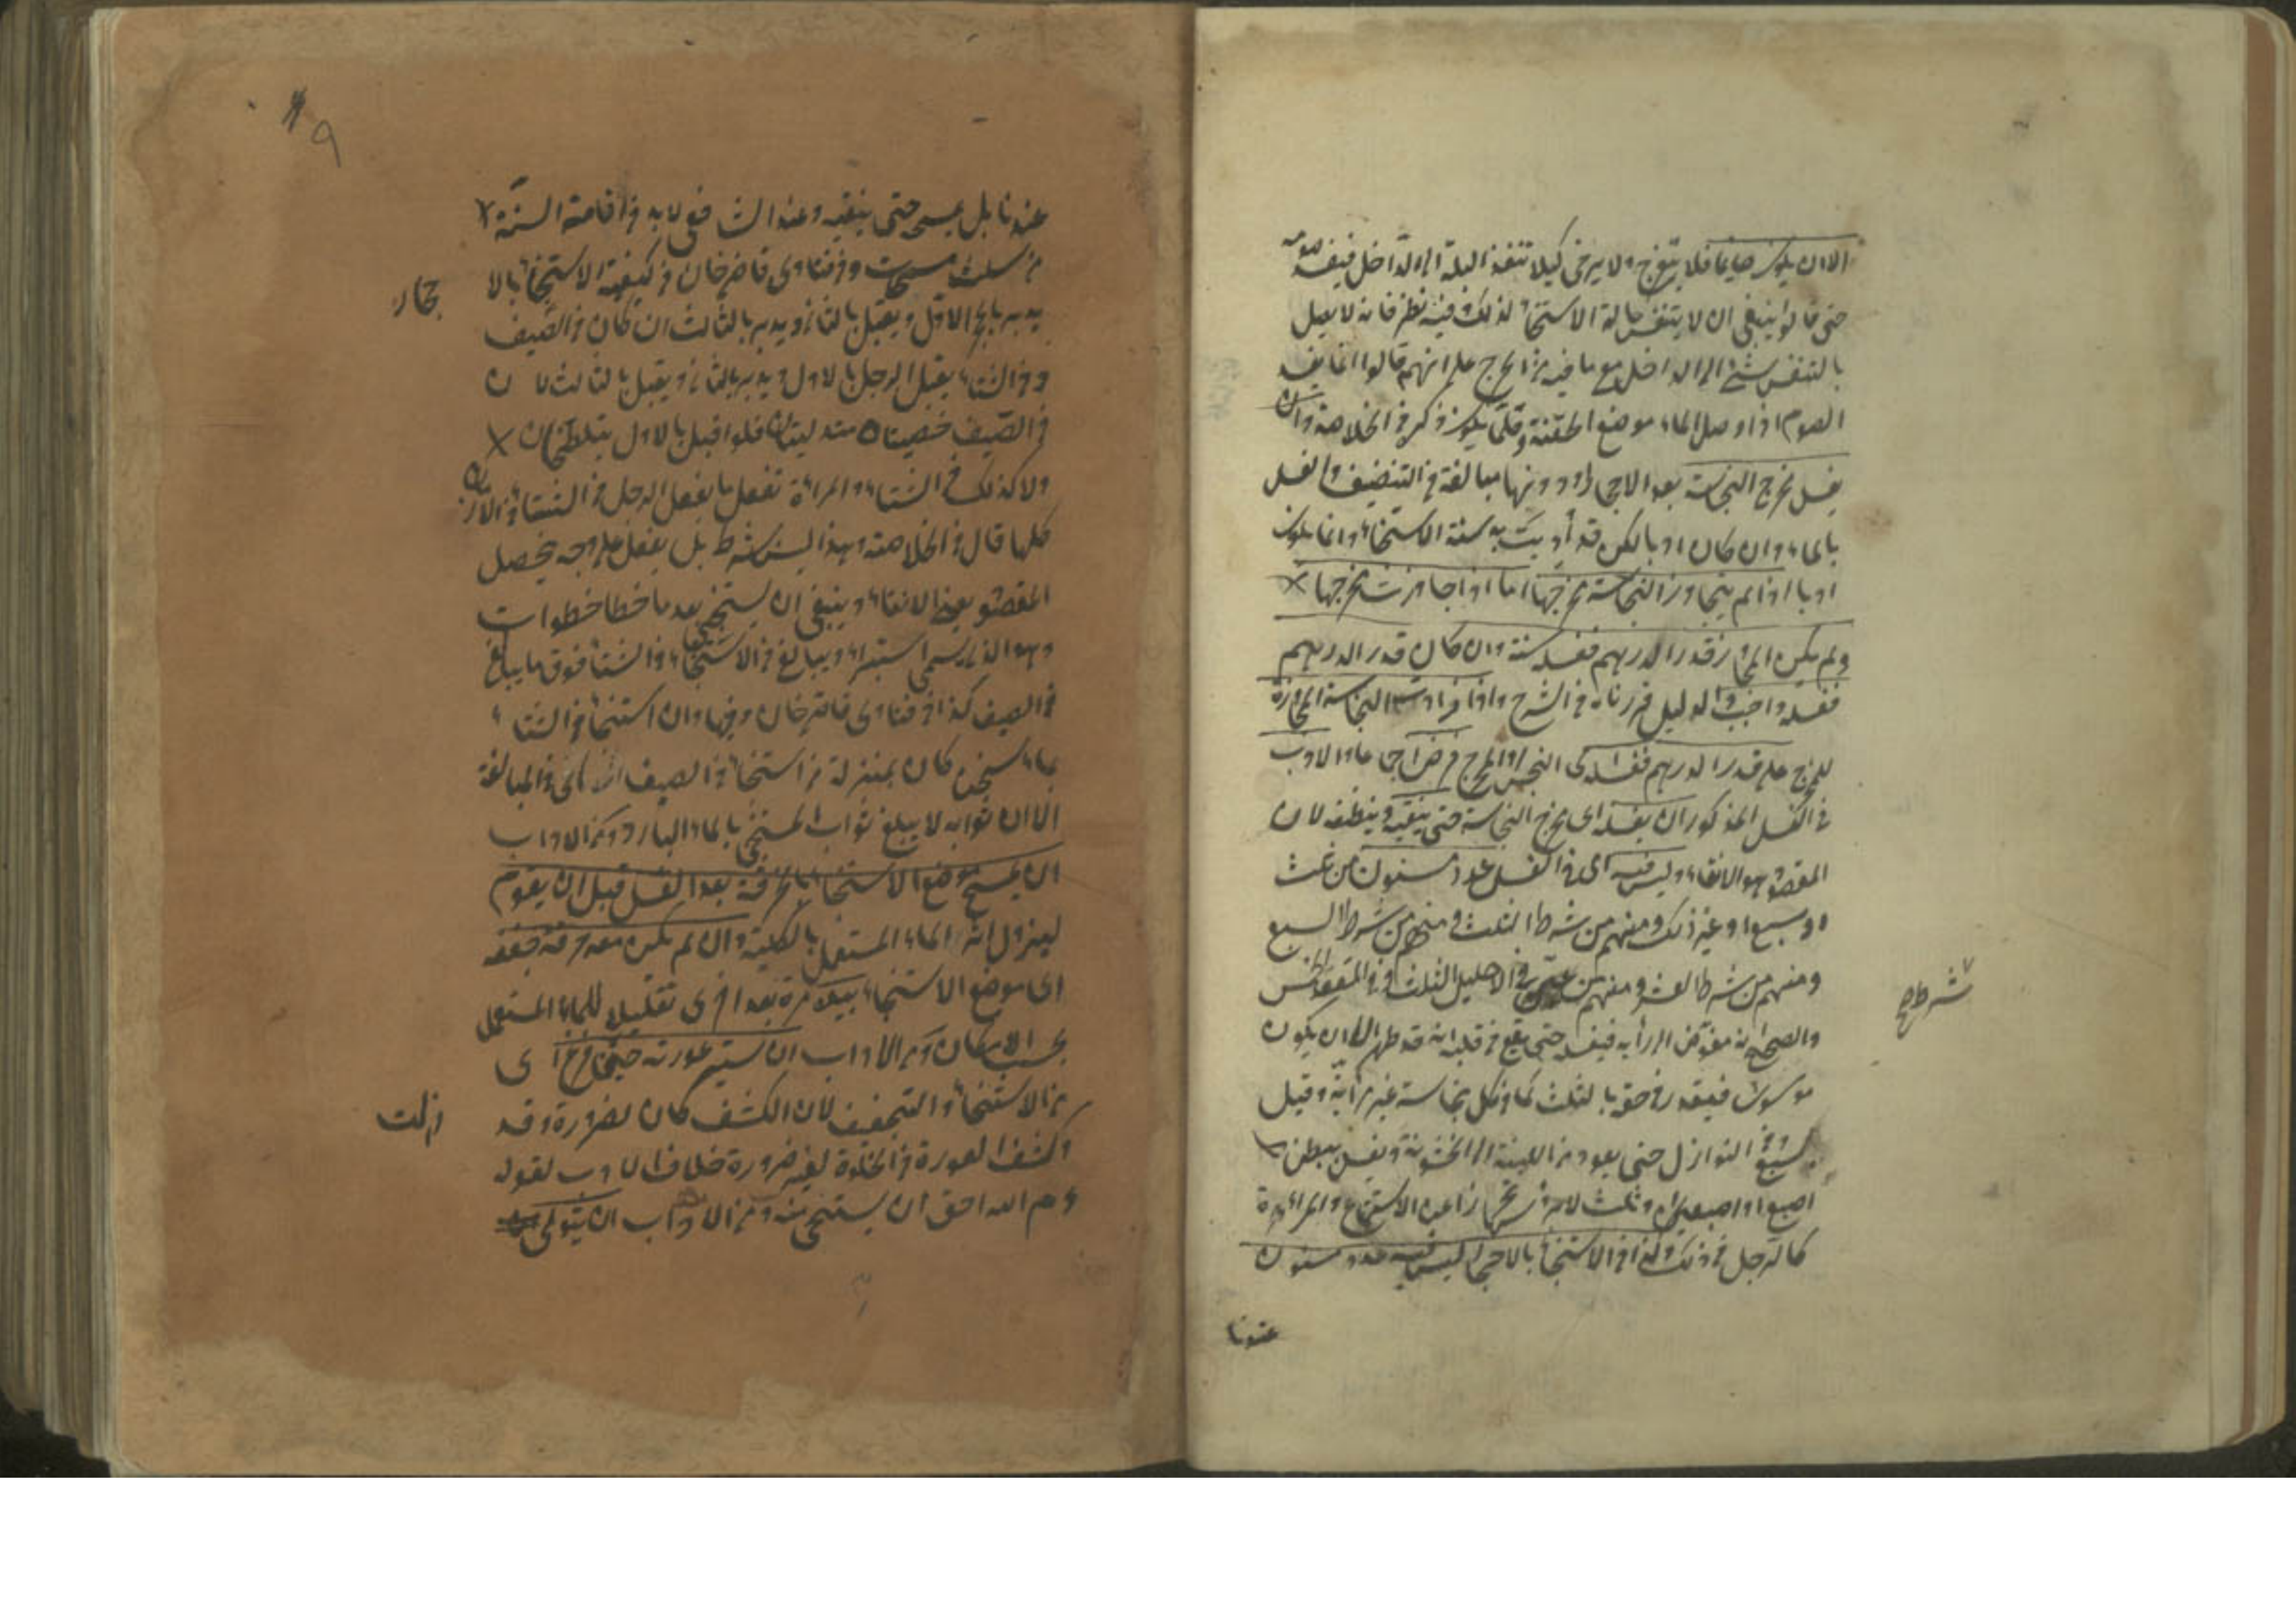 الا ان يكون صايما فلا يتفرج ولا يرخى كيلا تنفذ البلة الى الداخل فيفسد صومه
حتى قالوا ينبغى ان لا يتنفس حالة الاستنجاء لذلك فيه نظر فانه لا يصل
بالتنفس شئ الى الداخل مع ما فيه من الحرج على انهم قالوا انما يفسد
الصوم اذا وصل الماء موضع الحقنة وقلما يكون ذكره فى الخلاصة وان
يغسل مخرج النجاسة بعد الاحجار او دونها مبالغة فى التنظيف والغسل
بالماء وان كان ادبا لكن قد أديت به سنة الاستنجاء وانما يكون
ادبا اذا لم يتجاوز النجاسة مخرجها اما اذا جاوزت مخرجها
ولم يكن المجاوز قدر الدرهم فغسله سنة وان كان قدر الدرهم
فغسله واجب والدليل قررناه فى الشرح واذا زادت النجاسة المجاوزة
للمخرج على قدر الدرهم فغسله اى النجس او المخرج فرض اجماعا والادب
فى الغسل المذكور ان يغسله اى مخرج النجاسة حتى ينقيه وينظفه لان
المقصود هو الانقاء وليس فيه اى فى الغسل عدد مسنون من ثلث
او سبع او غير ذلك ومنهم من شرط الثلث ومنهم من شرط السبع
ومنهم من شرط العشر ومنهم من فى الاحليل الثلث وفى المقعد الخمس
والصحيح انه مفوض الى رأيه فيغسله حتى يقع فى قلبه انه قد طهر الا ان يكون
موسوسا فيقدر فى حقه بالثلث كما فى كل نجاسة غير مرئية وقيل
النوازل حتى يعود من اللينة الى الخشونة ويغسل ببطن
اصبع او اصبعين او ثلث لا برؤسها تحرزا عن الاستمتاع والمرأة
كالرجل فى ذلك وكذا فى الاستنجاء بالاحجار ليس فيه عدد مسنون
شرط صح
عندنا
٩
عندنا بل يمسح حتى ينقيه وعند الشافعى لا بد فى اقامة السنة
من ثلث مسحات وفى فتاوى قاضيخان فى كيفية الاستنجاء بالا
حجار
يدبر بالحجر الاول ويقبل بالثانى ويدبر بالثالث ان كان فى الصيف
وفى الشتاء يقبل الرجل بالاول ويدبر بالثانى ويقبل بالثالث لان
فى الصيف خصيتاه متدليتان فلو اقبل بالاول يتلطخان
ولا كذلك فى الشتاء والمرأة تفعل ما يفعل الرجل فى الشتاء فى الازمان
كلها قال فى الخلاصة وهذا ليس شرط بل يفعل على وجه يحصل
المقصود يعنى الانقاء وينبغى ان يستنجى بعد ما خطا خطوات
وهو الذى يسمى استبراء ويبالغ فى الاستنجاء فى الشتاء فوق ما يبالغ
فى الصيف كذا فى فتاوى قاضيخان وفيها وان استنجا فى الشتاء
بماء سخن كان بمنزلة من استنجا فى الصيف اى فى المبالغة
الا ان ثوابه لا يبلغ ثواب المستنجى بالماء البارد ومن الاداب
ان يمسح موضع الاستنجاء بالخرقة بعد الغسل قبل ان يقوم
ليزول اثر الماء المستعمل بالكلية وان لم يكن معه خرقة جففه
اى موضع الاستنجاء بيده مرة بعد اخرى تقليلا للماء المستعمل
بحسب الامكان ومن الاداب ان يستر عورته حين فرغ اى
من الاستنجاء والتجفيف لان الكشف كان لضرورة وقد
زالت
وكشف العورة فى الخلوة لغير ضرورة خلاف الادب لقوله
عم الله احق ان يستحى منه ومن الاداب ان يتولى